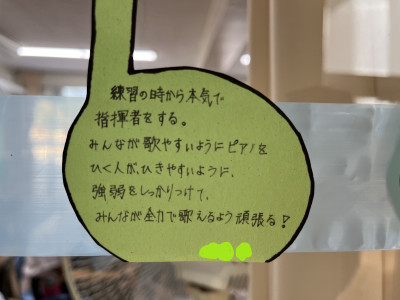 練習の時から本気で
指揮者をする。
みんなが歌やすいようにピアノを
ひく人が、ひきやすいように、
強弱をしっかりつけて、
みんなが全力で歌えるよう頑張る!